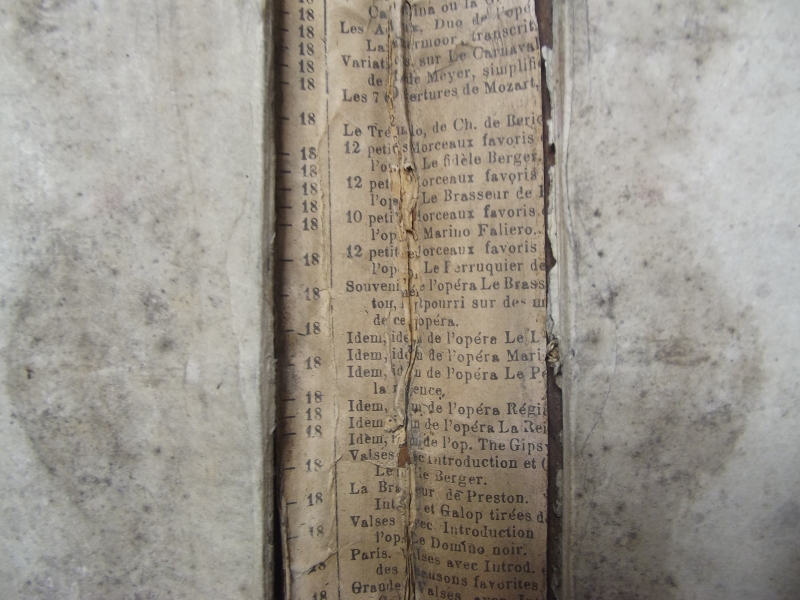 18
18 Les Duo de l'opé
18 La ermoor, transcrit
18 Variat s. sur Le Carnava
18 de de Meyer, simplifi
Les 7 ertures de Mozart,
18 Le Tre lo, de Ch. de Beri
18 12 petits Morceaux favoris
18 l'o Le fidèle Berger.
18 12 pet orceaux favoris
18 l'op Le Brasseur de
18 10 peti Morceaux favoris
l'op Marino Faliero.
12 petit Morceaux favoris
18 l'op Le Perruquier de
18 Souveni e l'opéra Le Brass
ton, potpourri sur des
de ce opéra.
18 Idem, idem de l'opéra Le
Idem, idem de l'opéra Mari
18 Idem, idem de l'opéra Le Pe
la ence,
18 Idem, m de l'opéra Régi
18 Idem m de l'opéra La Rei
18 Idem, de l'op. The Gips
Valses ec Introduction et
18 Le le Berger.
La Bra eur de Preston.
18 Int et Galop tirées d
Valses ec Introduction
18 l'op Le Domino noir.
Paris. alses avec Introd.
18 des ansons favorites
Grande Valses avec
18